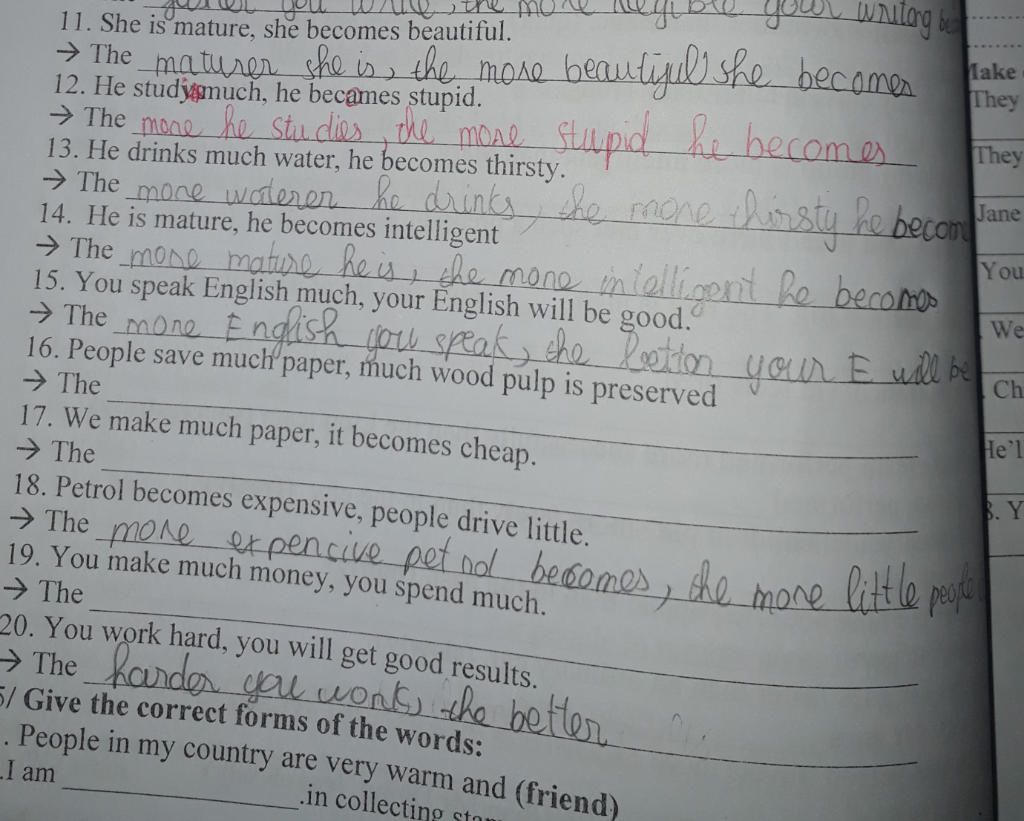 you write, the more legible your writing
11. She is mature, she becomes beautiful.
→ The maturer she is, the more beautiful she becomes
12. He studys much, he becames stupid.
→ The more he studies, the more stupid he becomes
13. He drinks much water, he becomes thirsty.
→ The more waterer he drinks, the more thirsty he becom
14. He is mature, he becomes intelligent
→ The more mature he is, the more intelligent he becomes
15. You speak English much, your English will be good.
→ The more English you speak, the better your E will be
16. People save much paper, much wood pulp is preserved
→ The
17. We make much paper, it becomes cheap.
→ The
18. Petrol becomes expensive, people drive little.
→ The more expencive petrol becomes, the more little people
19. You make much money, you spend much.
→ The
20. You work hard, you will get good results.
→ The harder you work, the better
5/ Give the correct forms of the words:
. People in my country are very warm and (friend)
.I am .in collecting
Make
They
They
Jane
You
We
Ch
He'l
8. Y